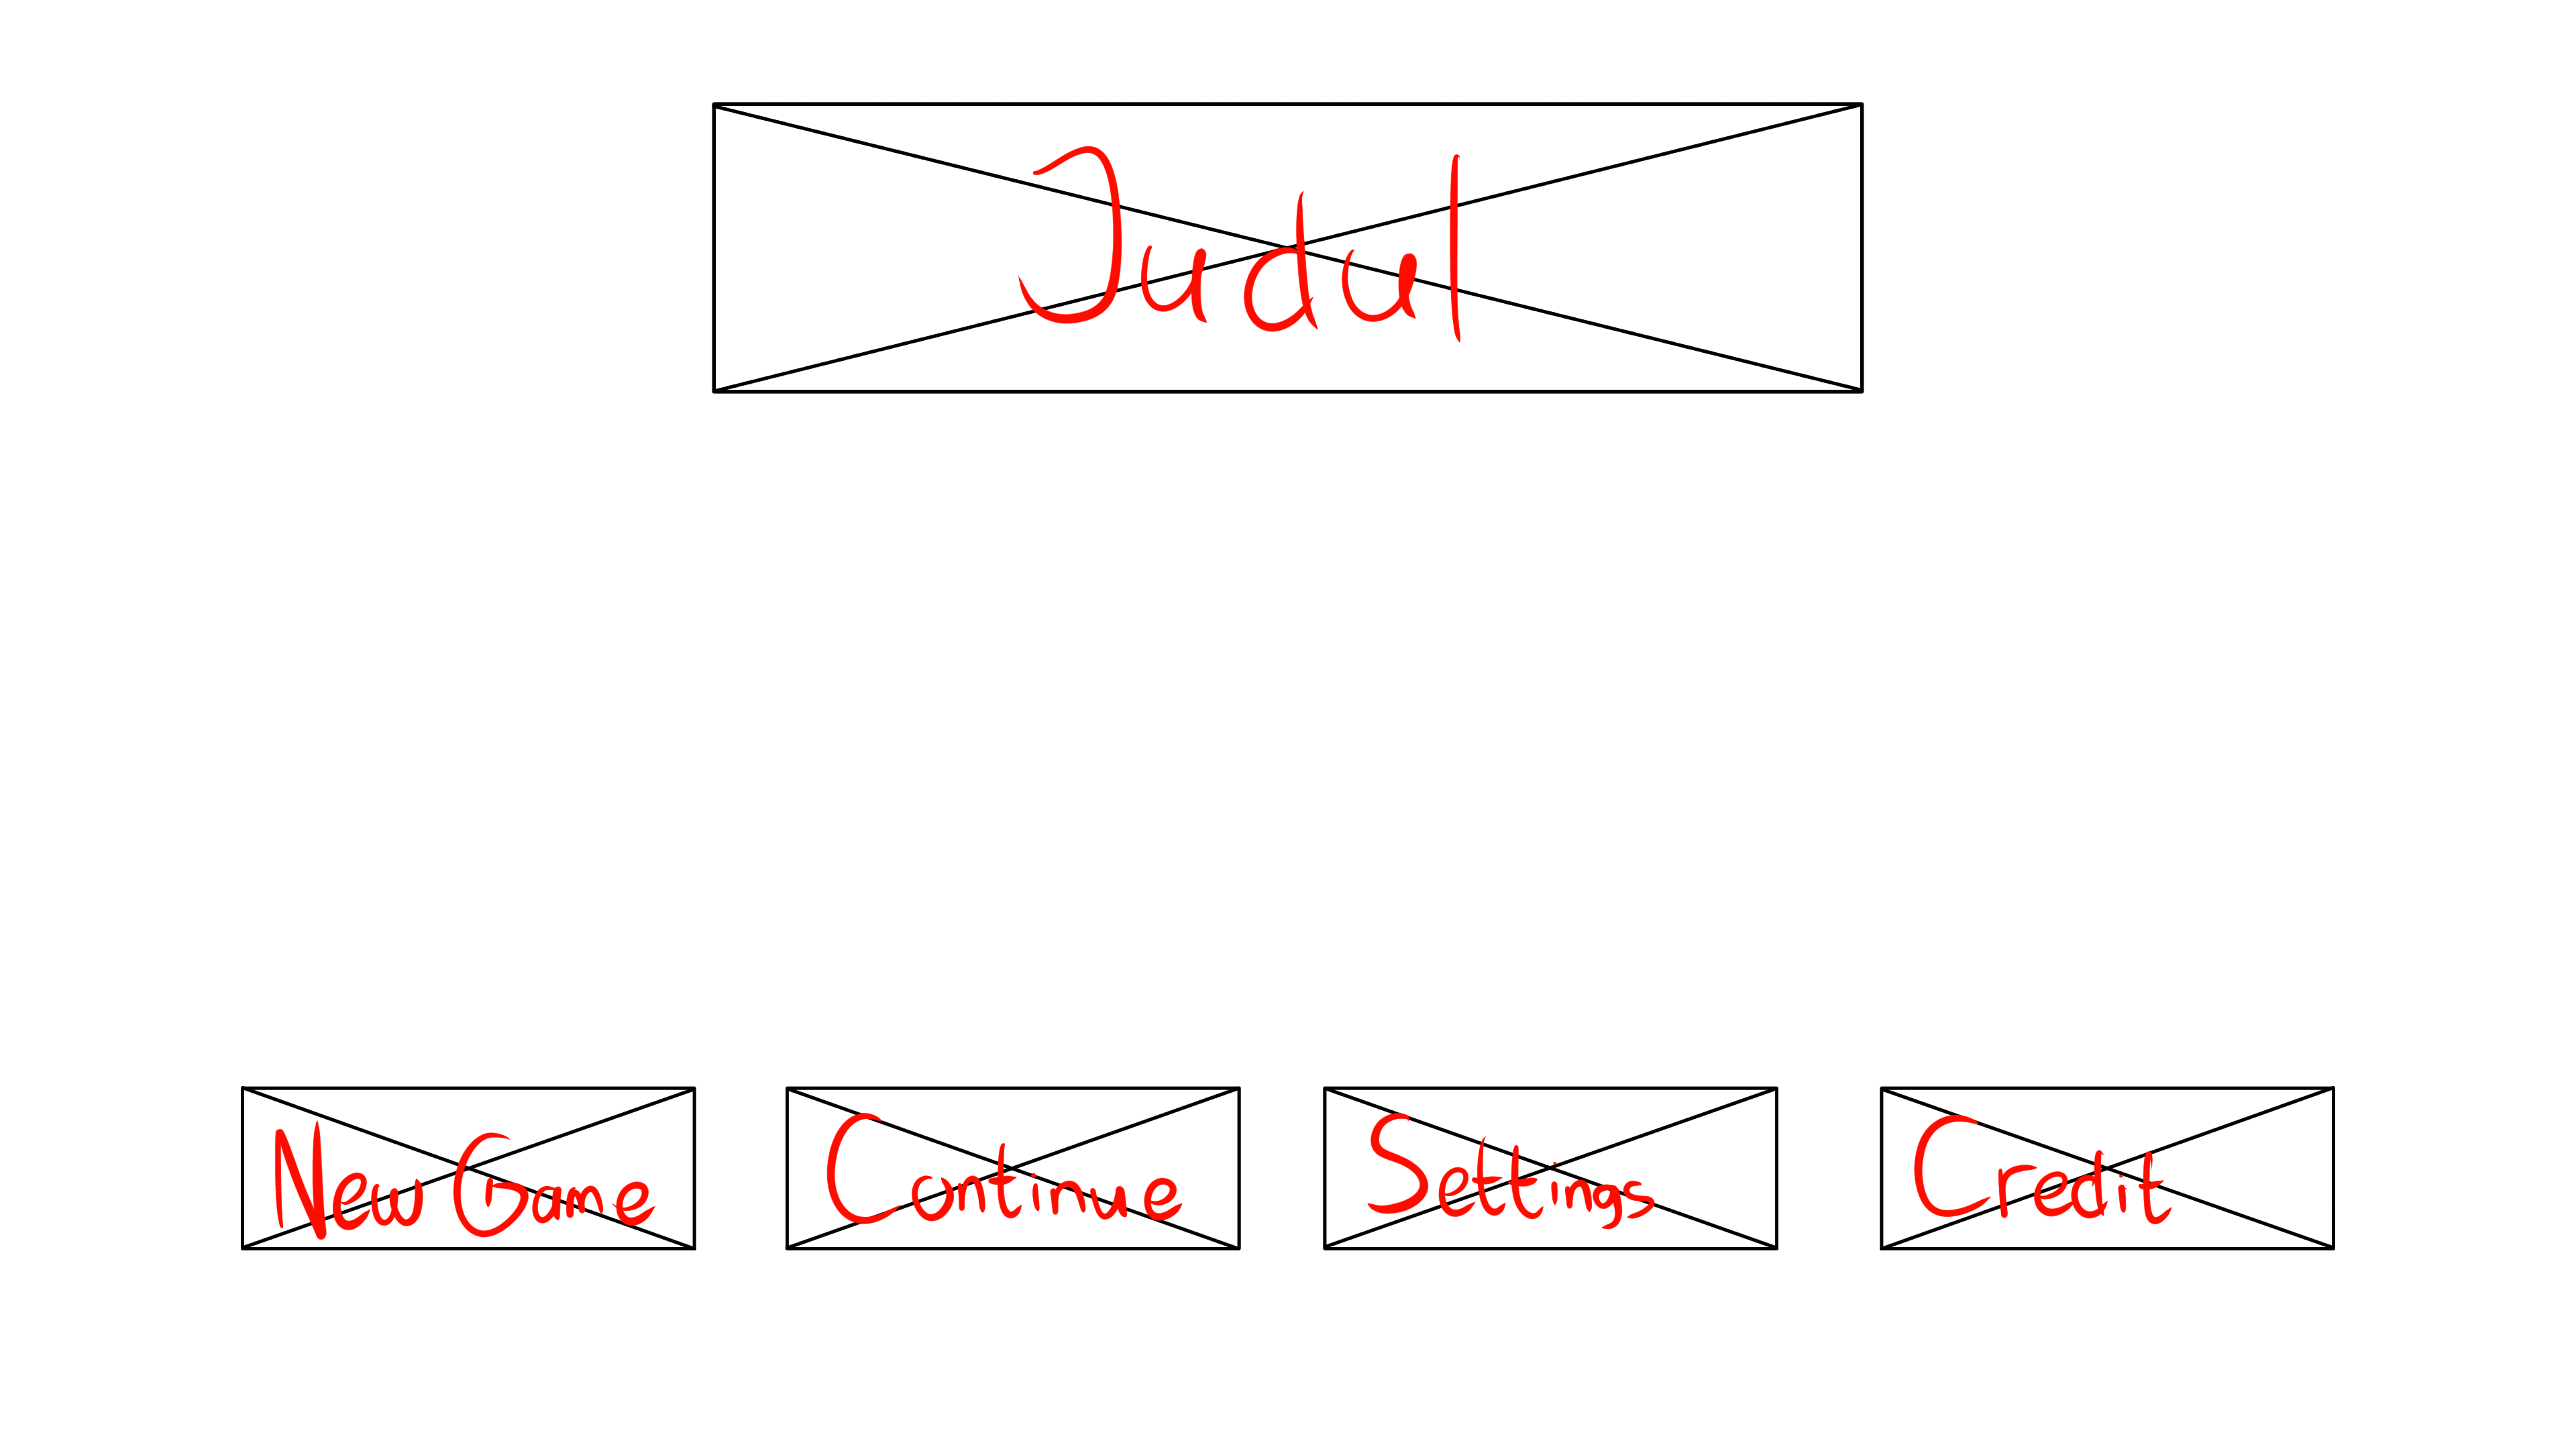 Judul
New Game
Continue
Settings
Credit